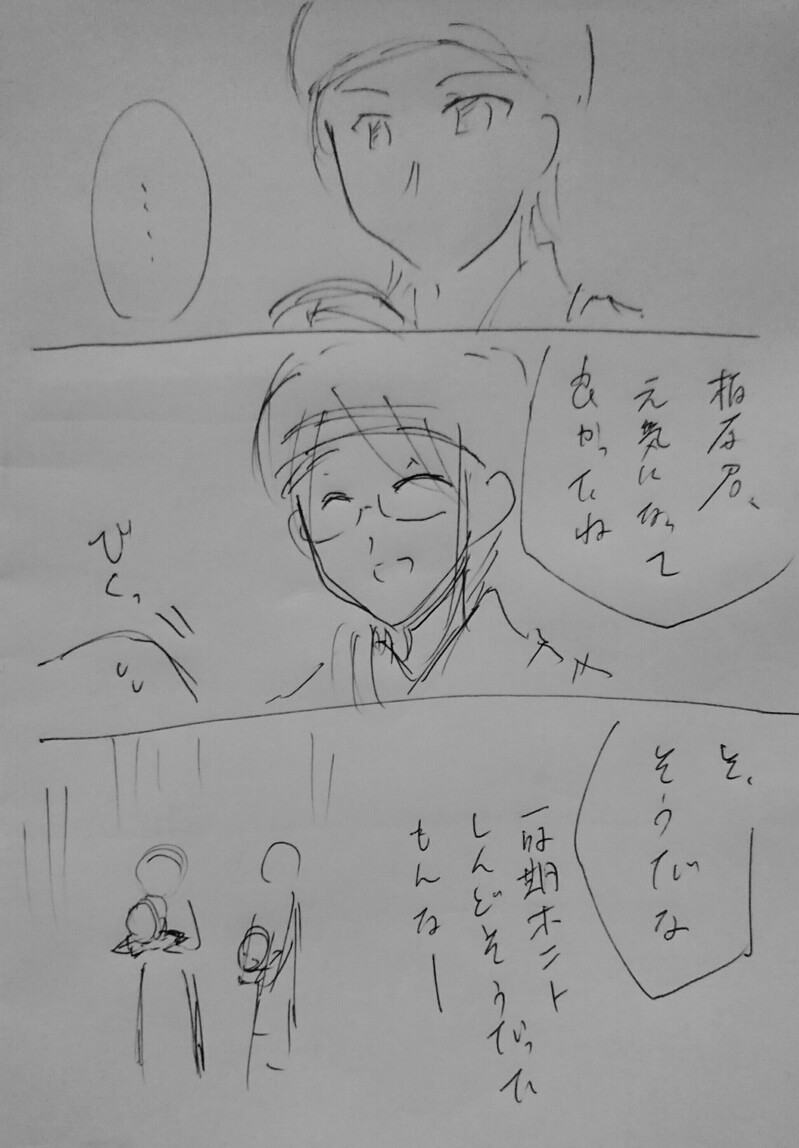 ……
柏原君、
元気になって
良かったね
びくっ
そ、
そうだな
一時期ホント
しんどそうだった
もんなー